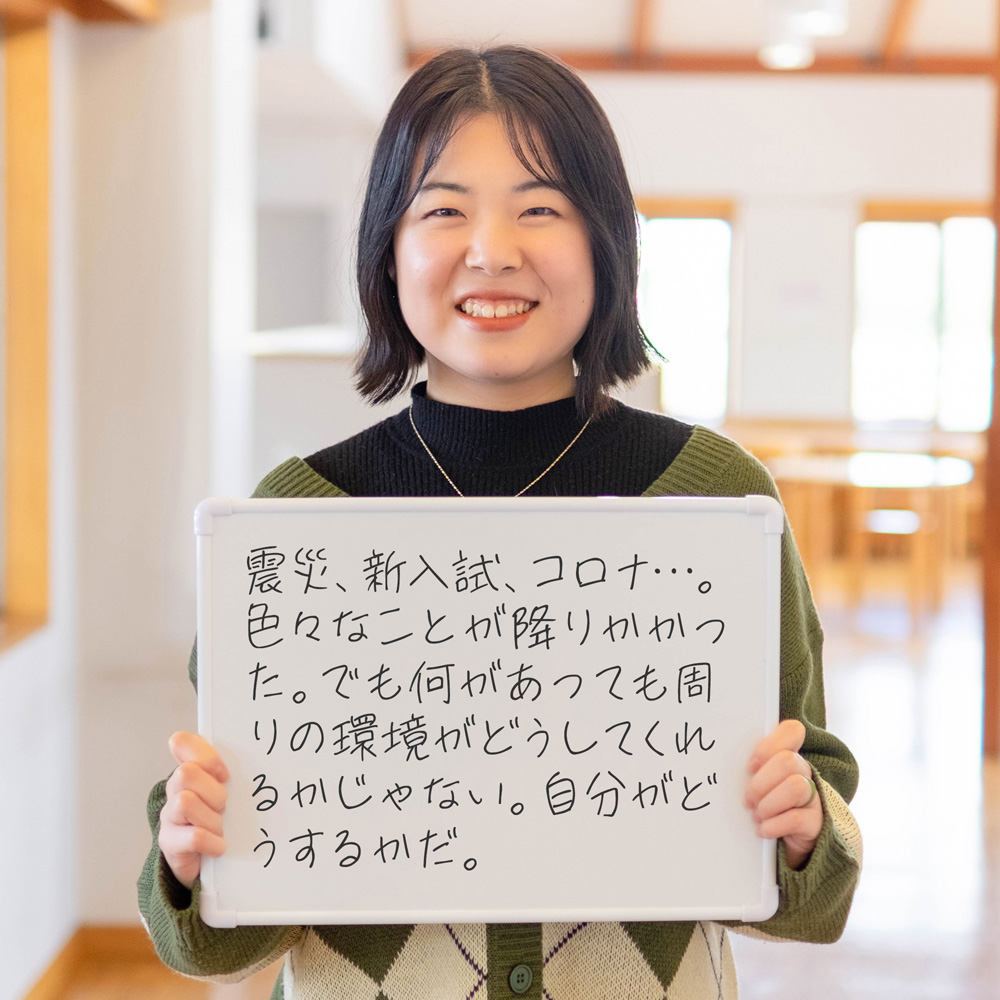 震災、新入試、コロナ…。
色々なことが降りかかっ
た。でも何があっても周
りの環境がどうしてくれ
るかじゃない。自分がど
うするかだ。